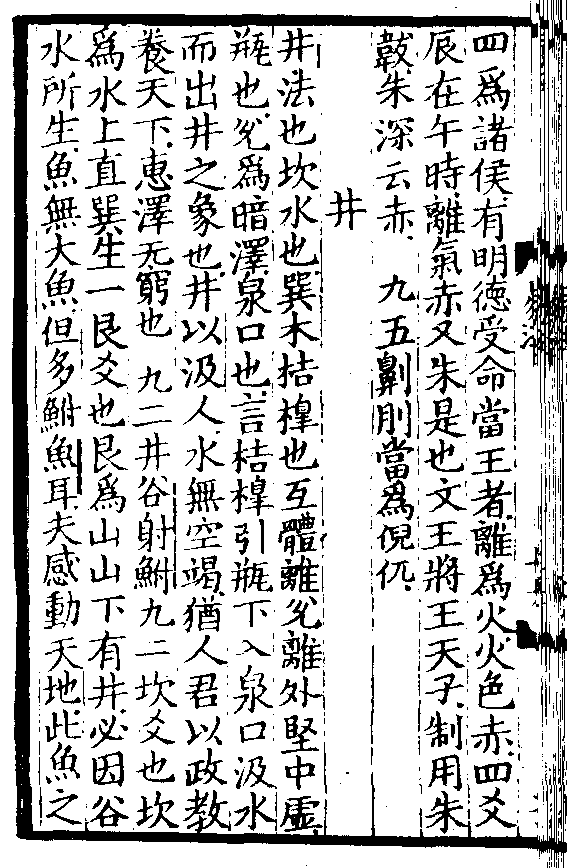 四爲諸侯有明德受命當王者離爲火火色赤四爻
辰在午時離氣赤又朱是也文王將王天子制用朱
韍朱深云赤　九五劓刖當爲倪仉
井
井法也坎水也巽木桔橰也互體離兊離外堅中虛
瓶也兊爲暗澤泉口也言桔橰引瓶下入泉口汲水
而出井之象也井以汲人水無空竭猶人君以政教
養天下惠澤无窮也　九二井谷射鮒九二坎爻也坎
爲水上直巽生一艮爻也艮爲山山下有井必因谷
水所生魚無大魚但多鮒魚耳夫感動天地此魚之